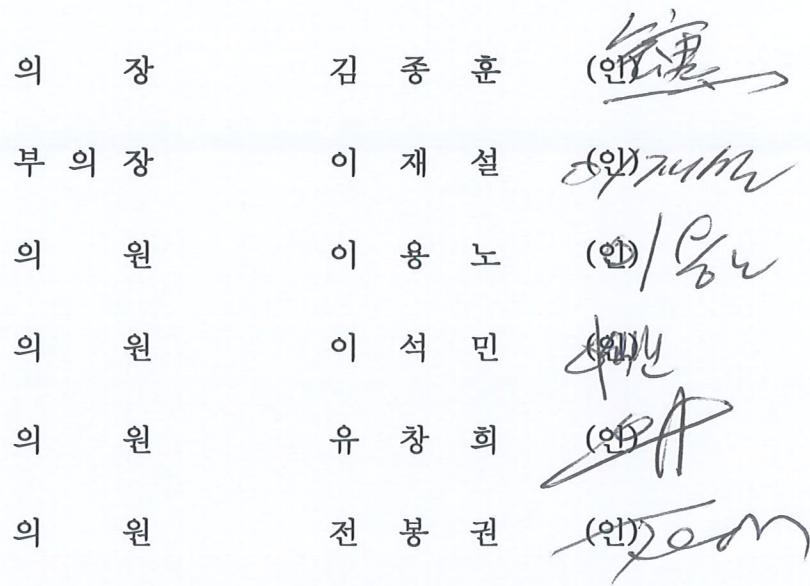 의 장 김 종 훈 (인)
부 의 장 이 재 설 (인) 이재설
의 원 이 용 노 (인) 이용노
의 원 이 석 민 (인)
의 원 유 창 희 (인)
의 원 전 봉 권 (인)